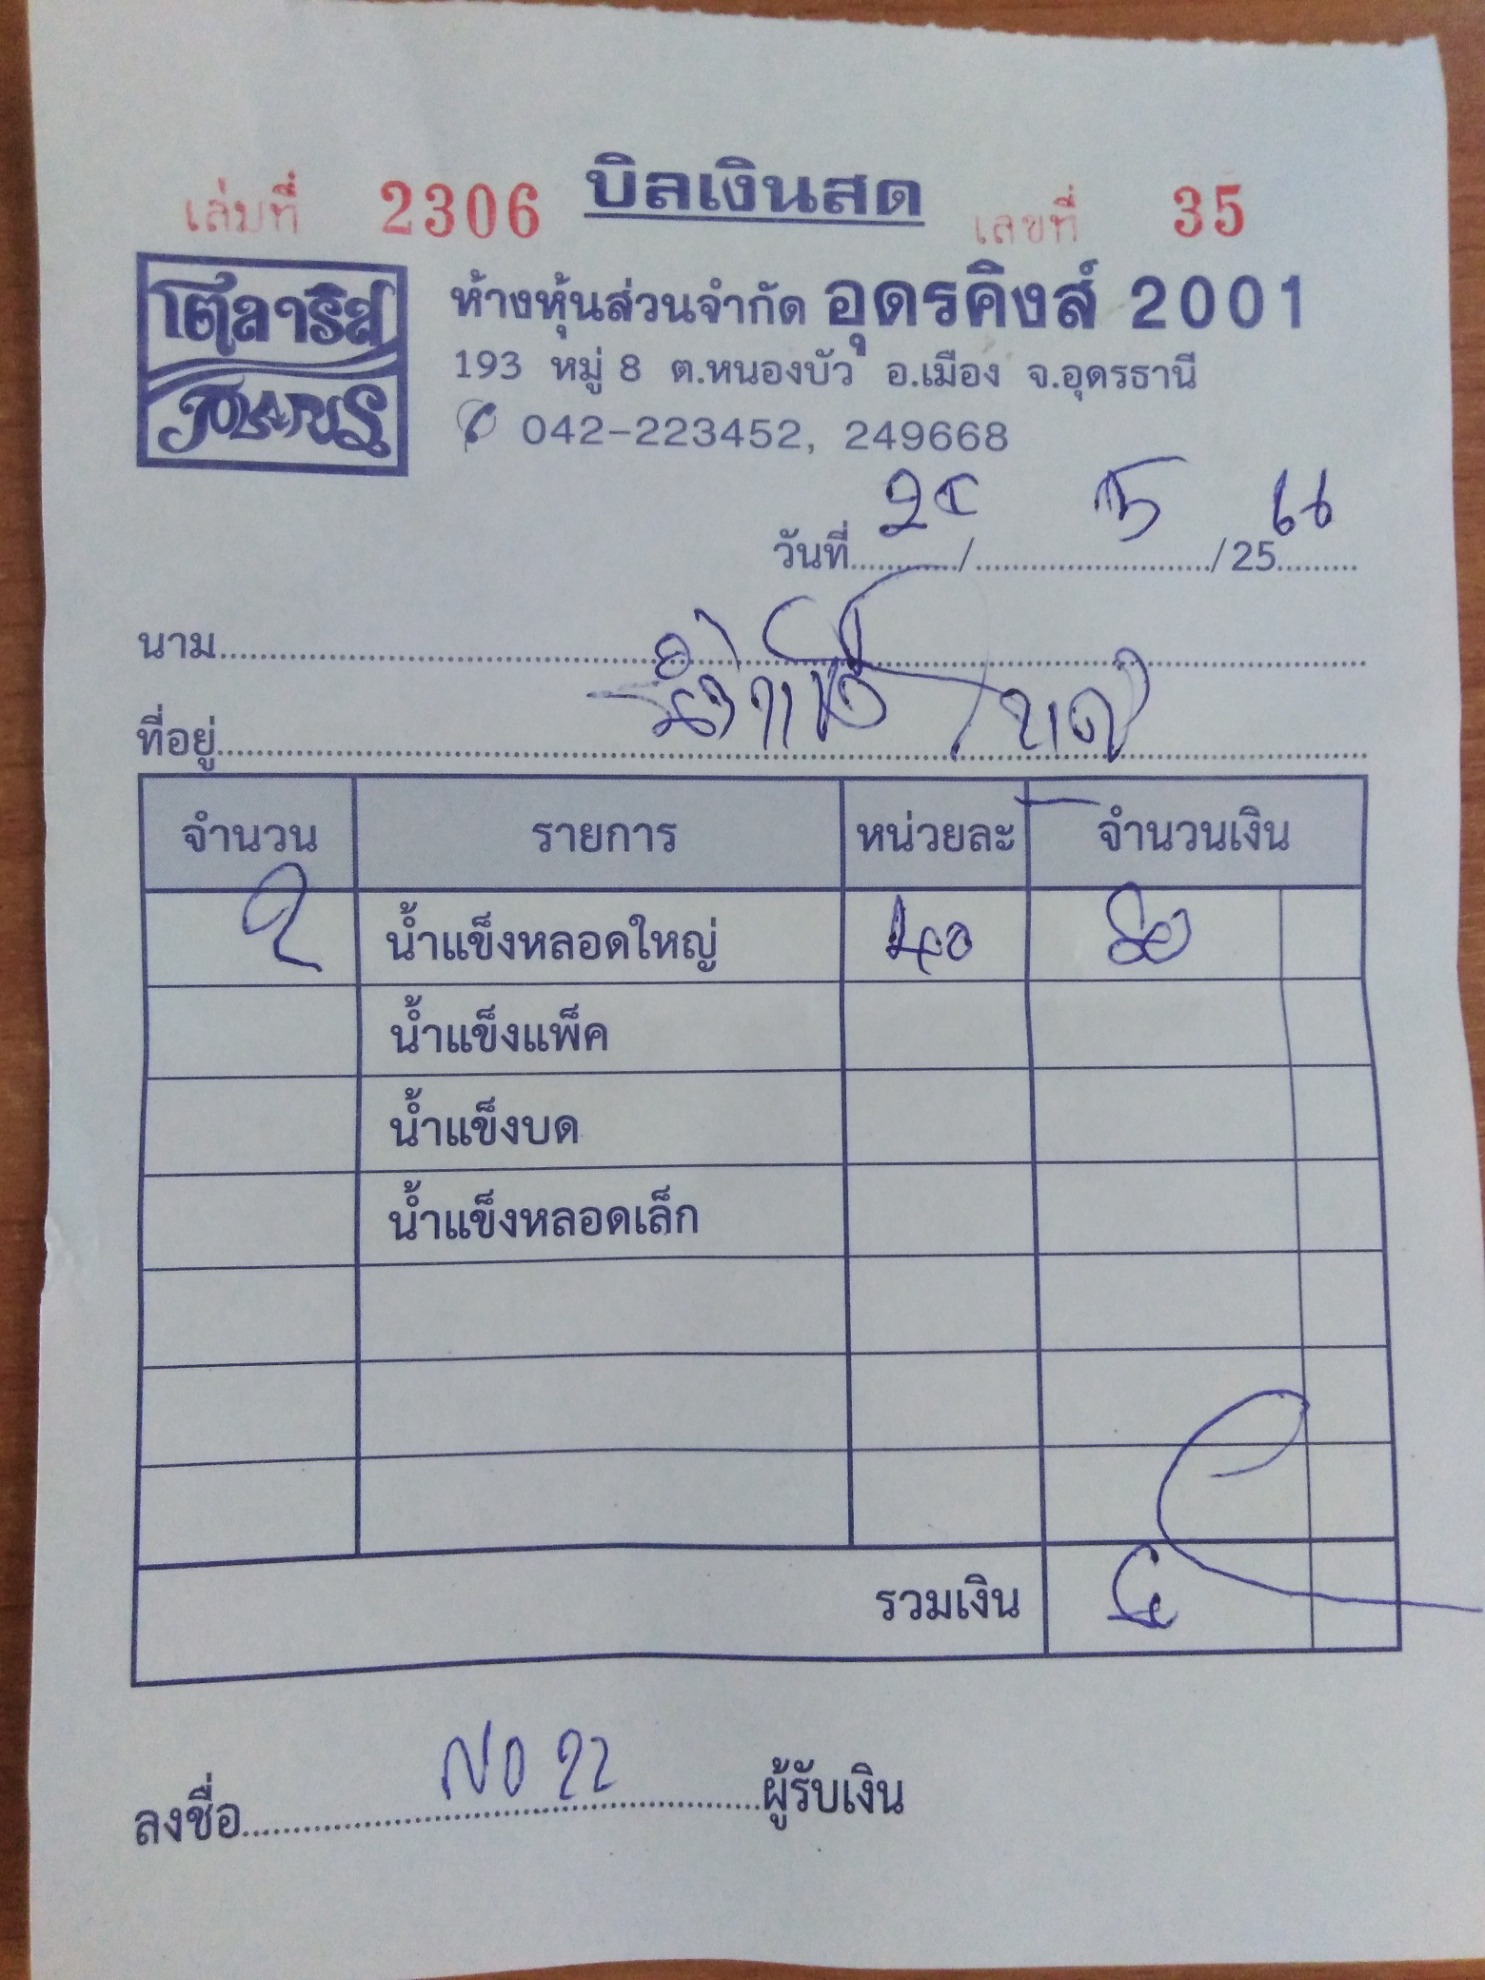 เล่มที่ 2306 บิลเงินสด เลขที่ 35
โตลาริส
ห้างหุ้นส่วนจำกัด อุดรคิงส์ 2001
193 หมู่ 8 ต.หนองบัว อ.เมือง จ.อุดรธานี
042-223452, 249668
วันที่ / /25 66
นาม
ที่อยู่
จำนวน รายการ หน่วยละ จำนวนเงิน
2 น้ำแข็งหลอดใหญ่ 40 80
น้ำแข็งแพ็ค
น้ำแข็งบด
น้ำแข็งหลอดเล็ก
รวมเงิน
ลงชื่อ NO 22 ผู้รับเงิน